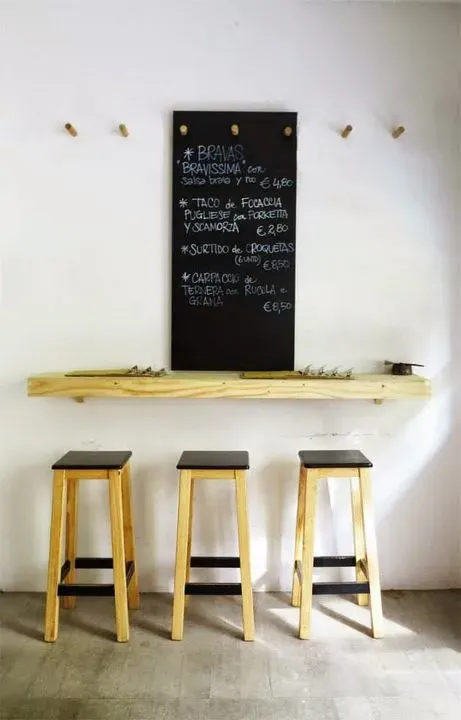 * BRAVAS
"BRAVISSIMA" con
salsa brava y €4,80
* TACO de FOCACCIA
PUGLIESE con PORKETTA
Y SCAMORZA €2,80
* SURTIDO de CROQUETAS
(6 UND) €8,50
* CARPACCIO de
TERNERA con RUCOLA e
GRANA €8,50